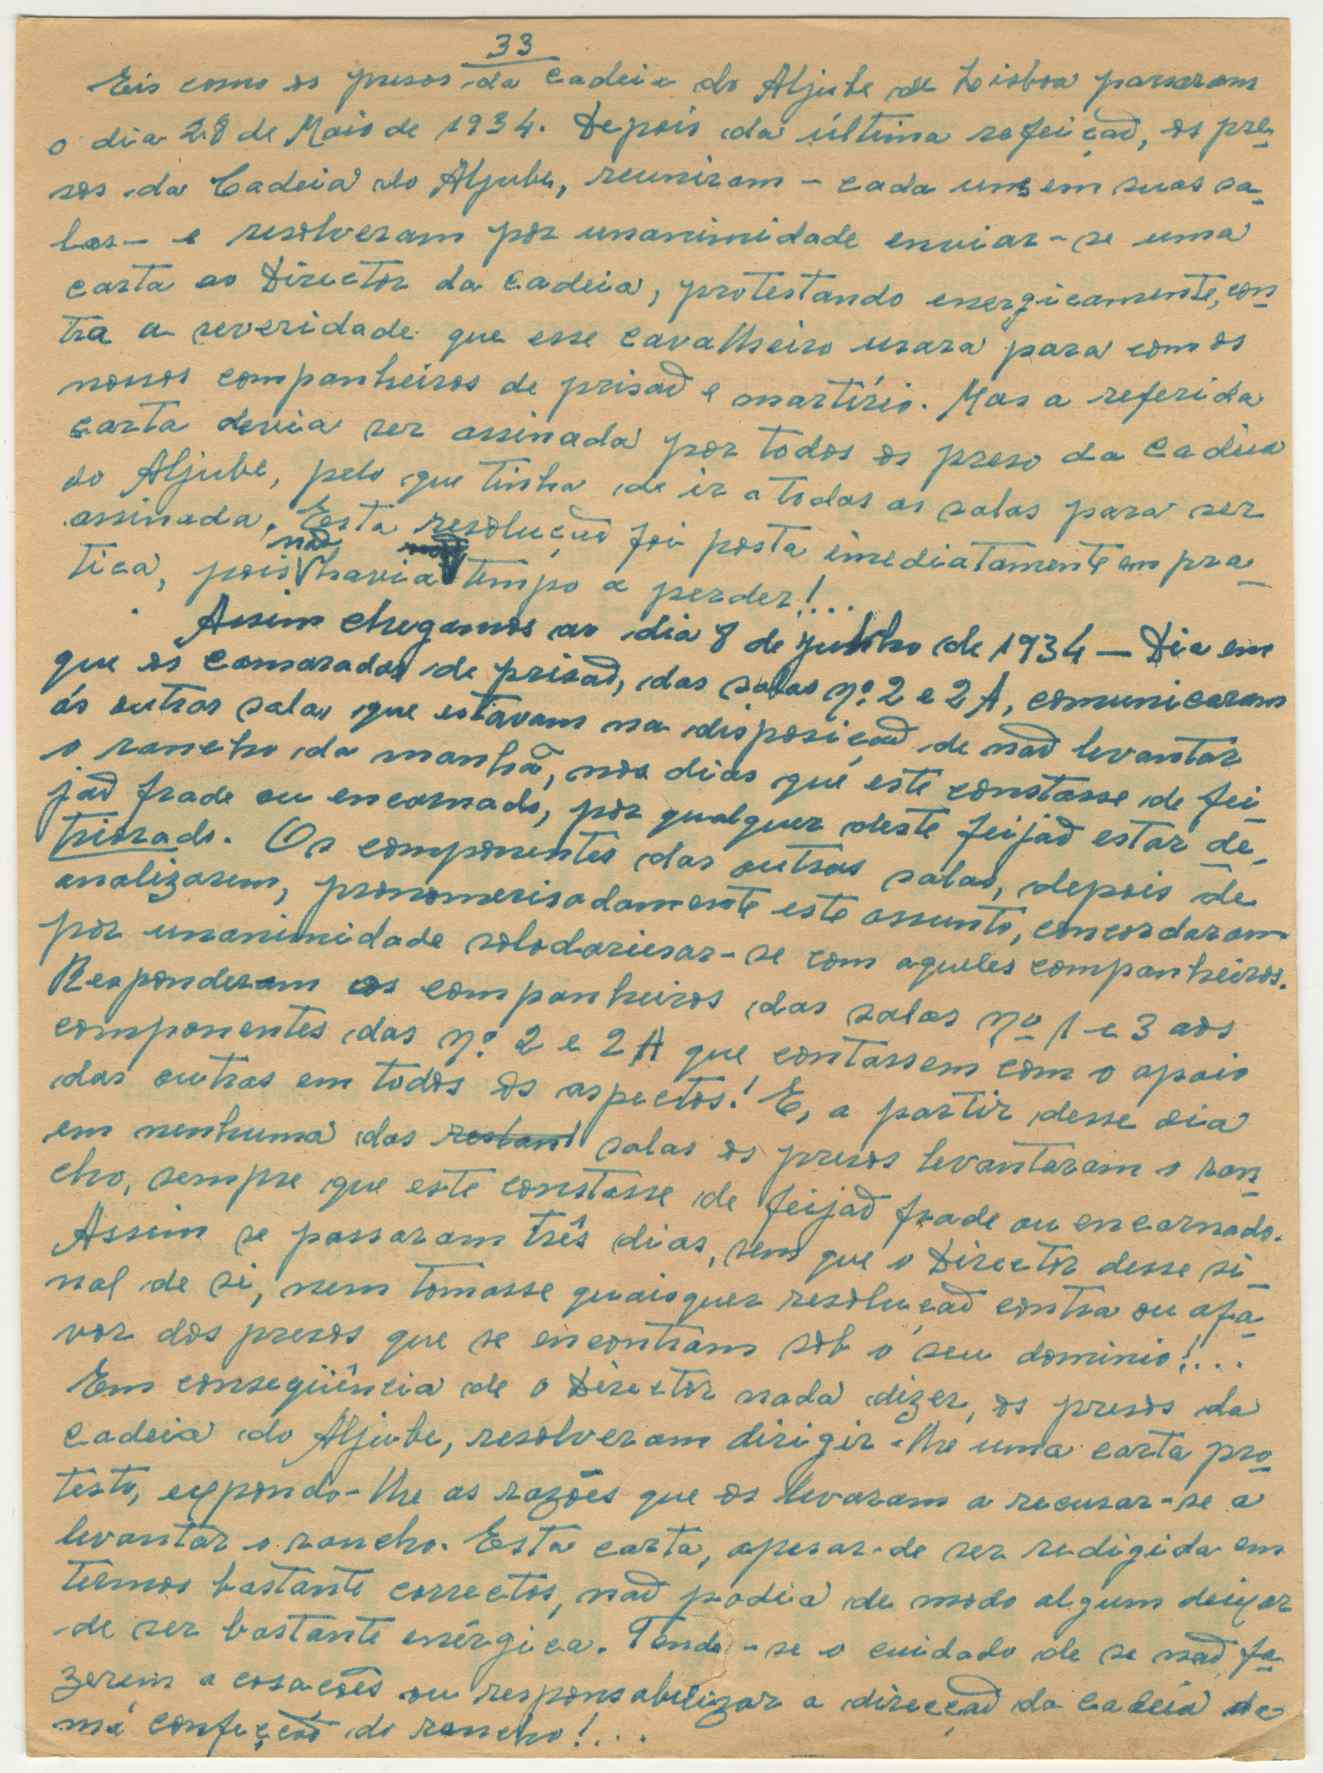 33
Eis como os presos da Cadeia do Aljube de Lisboa passaram
o dia 28 de Maio de 1934. Depois da última refeição, os pre-
sos da Cadeia do Aljube, reuniram - cada uns em suas sa-
las - e resolveram por unanimidade enviar-se uma
carta ao Director da Cadeia, protestando energicamente, con-
tra a severidade que esse cavalheiro usara para com os
nossos companheiros de prisão e martírio. Mas a referida
carta devia ser assinada por todos os preso da Cadeia
do Aljube, pelo que tinha de ir a todas as salas para ser
assinada. Esta resolução foi posta imediatamente em pra-
tica, pois não havia tempo a perder!...
Assim chegamos ao dia 8 de julho de 1934 — Dia em
que os camaradas de prisão, das salas nº 2 e 2A, comunicaram
ás outras salas que estavam na disposição de não levantar
o rancho da manhã, nos dias que este constasse de fei-
jão frade ou encarnado, por qualquer deste feijão estar de-
triorado. Os componentes das outras salas, depois de
analizarem, pronomerisadamente este assunto, concordaram
por unanimidade solodariesar-se com aqueles companheiros.
Responderam os companheiros das salas nº 1 e 3 aos
componentes das nº 2 e 2A que contassem com o apoio
das outras em todos os aspectos! E, a partir desse dia
em nenhuma das restant salas os presos levantaram o ran-
cho, sempre que este constasse de feijão frade ou encarnado.
Assim se passaram três dias, sem que o Director desse si-
nal de si, nem tomasse quaisquer resolução contra ou afa-
vor dos presos que se encontram sob o seu dominio!...
Em conseqüência de o Director nada dizer, os presos da
Cadeia do Aljube, resolveram dirigir-lhe uma carta pro-
testo, expondo-lhe as razões que os levaram a recusar-se a
levantar o rancho. Esta carta, apesar-de ser redigida em
termos bastante correctos, não podia de modo algum deixar
de ser bastante enérgica. Tendo-se o cuidado de se não fa-
zerem acosacões ou responsabilizar a direcção da cadeia de
má confecção do rancho!...